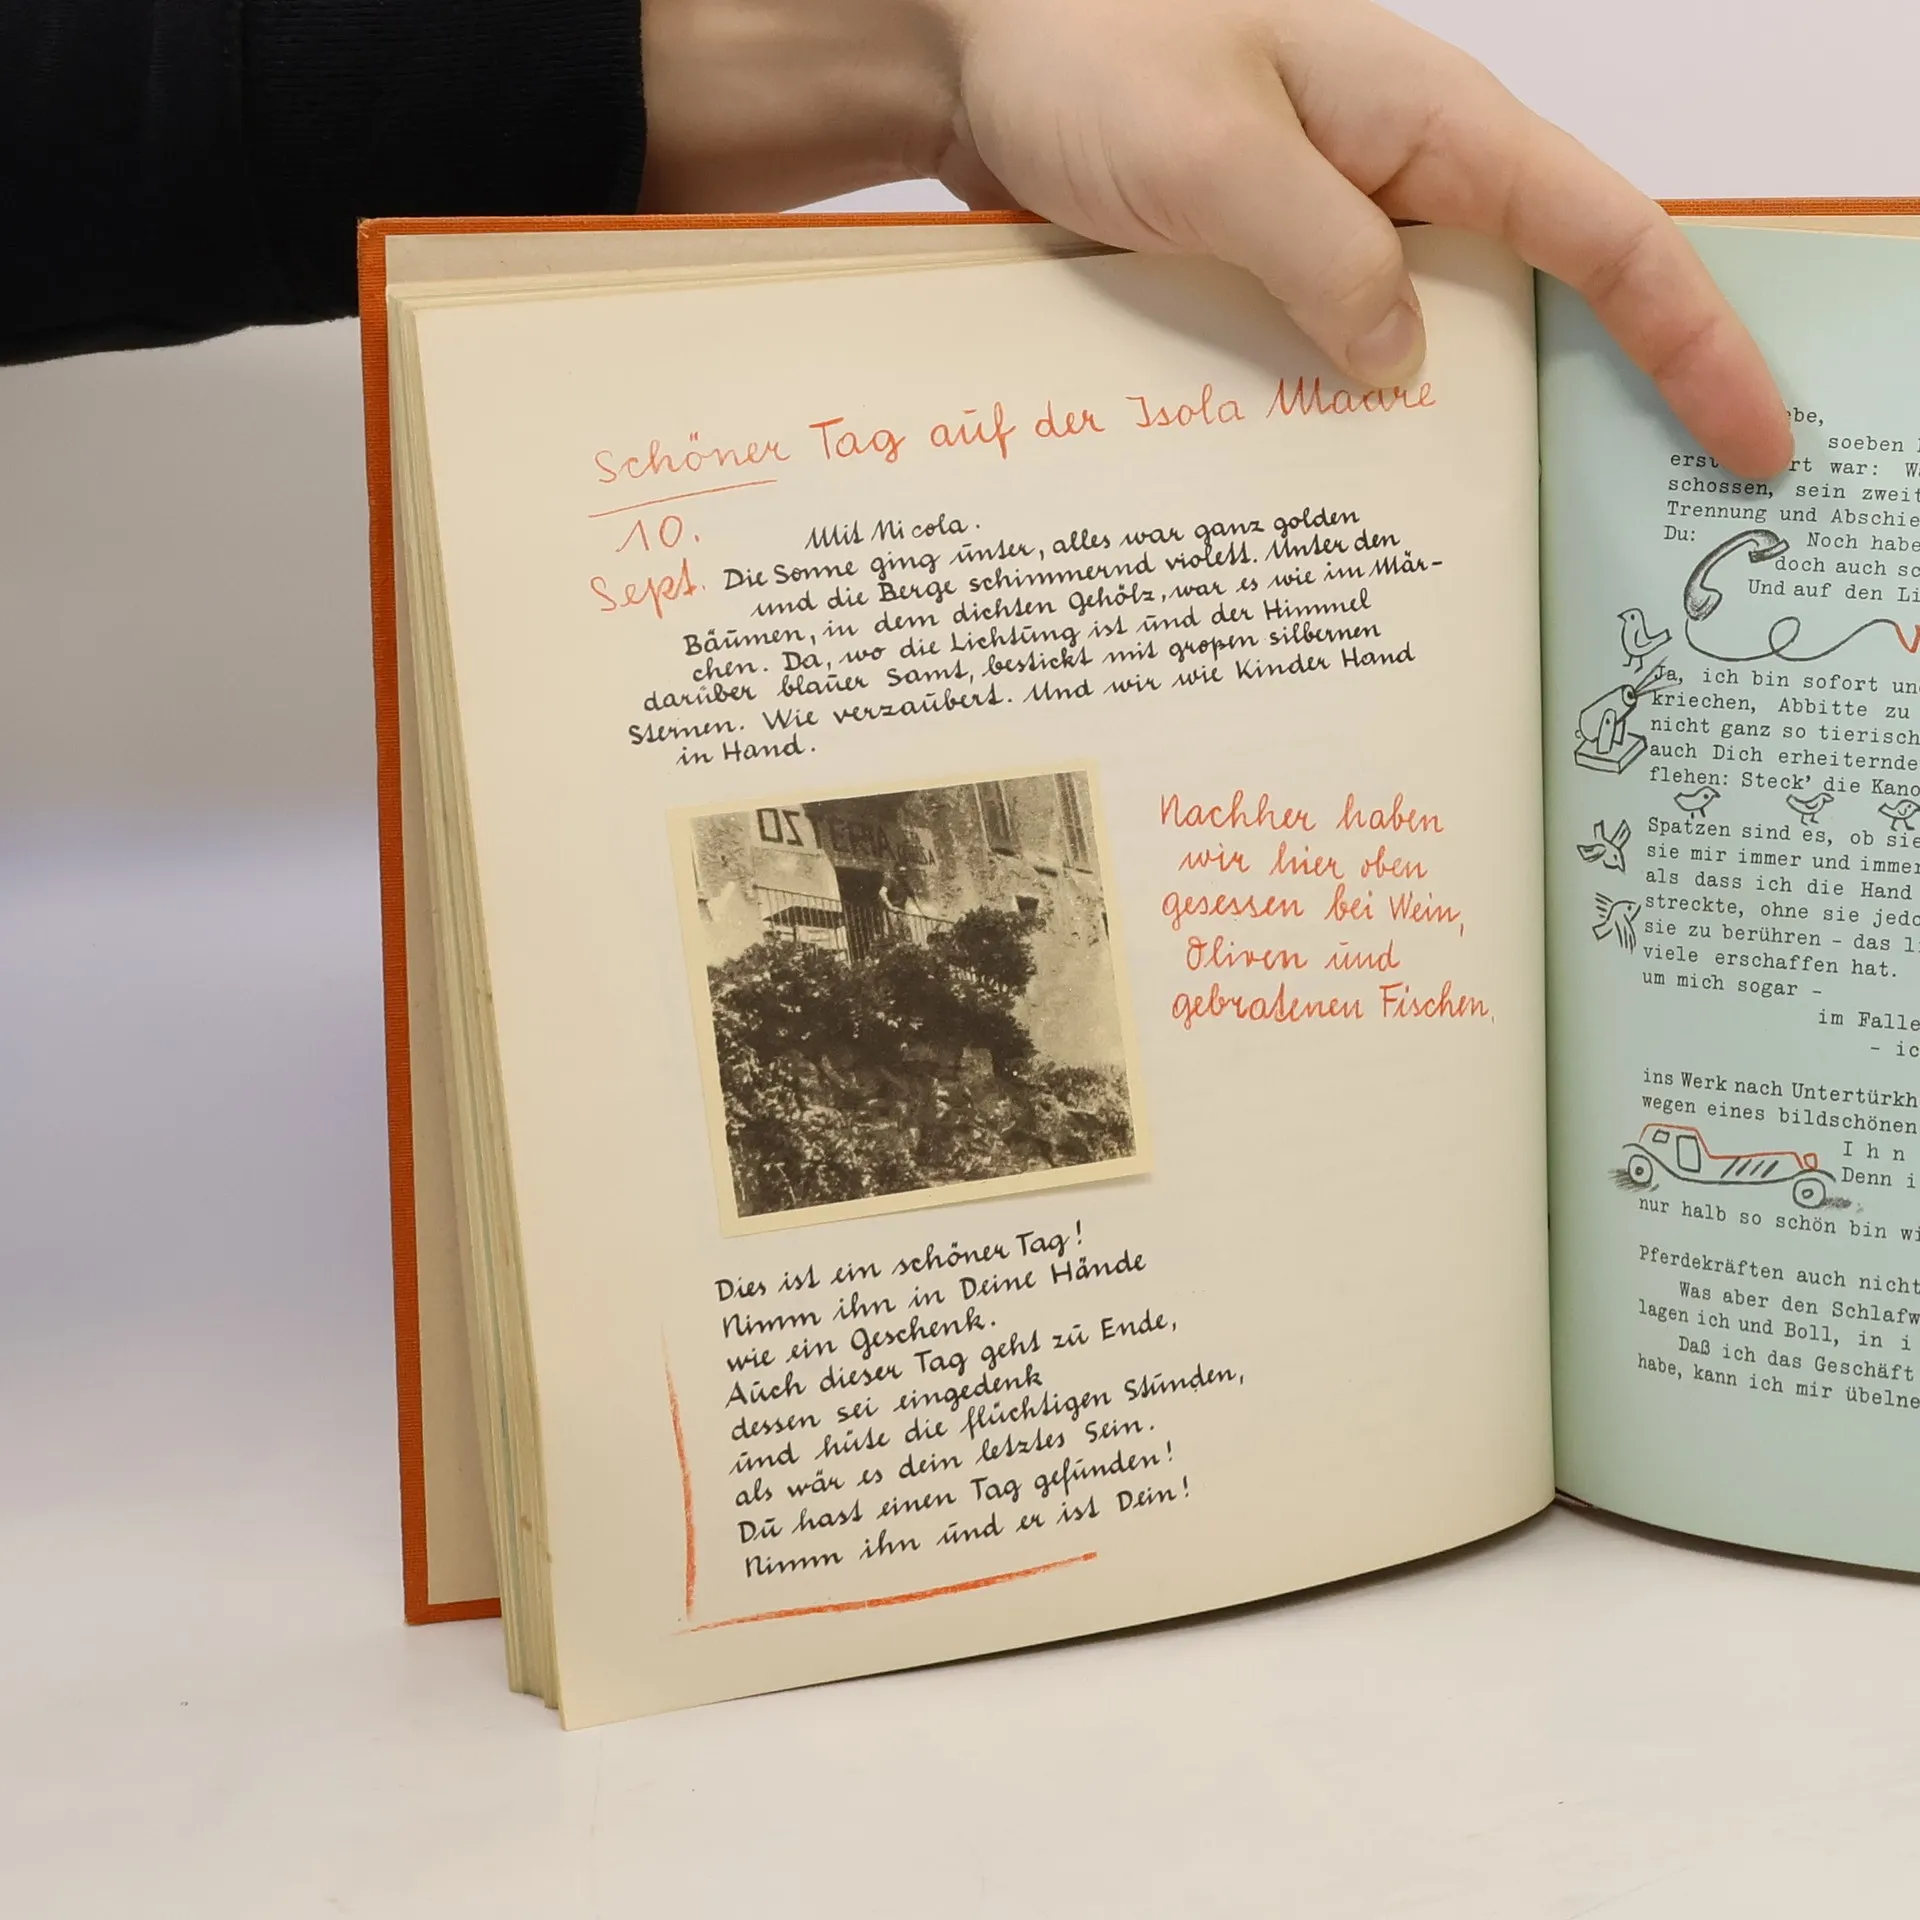 Schöner Tag auf der Isola Maare
10.
Sept.
Mit Nicola.
Die Sonne ging unter, alles war ganz golden
und die Berge schimmernd violett. Unter den
Bäumen, in dem dichten Gehölz, war es wie im Mär-
chen. Da, wo die Lichtung ist und der Himmel
darüber blauer Samt, bestickt mit großen silbernen
Sternen. Wie verzaubert. Und wir wie Kinder Hand
in Hand.
OSTERIA
Nachher haben
wir hier oben
gesessen bei Wein,
Oliven und
gebratenen Fischen.
Dies ist ein schöner Tag!
Nimm ihn in Deine Hände
wie ein Geschenk.
Auch dieser Tag geht zu Ende,
dessen sei eingedenk
und hüte die flüchtigen Stunden,
als wär es dein letztes Sein.
Du hast einen Tag gefunden!
Nimm ihn und er ist Dein!
soeben
war:
schossen, sein zweit
Trennung und Abschie
Du:
Noch habe
doch auch sc
Und auf den Li
Ja, ich bin sofort und
kriechen, Abbitte zu
nicht ganz so tierisch
auch Dich erheiternde
flehen: Steck' die Kano
Spatzen sind es, ob sie
sie mir immer und immer
als dass ich die Hand
streckte, ohne sie jedo
sie zu berühren - das li
viele erschaffen hat.
um mich sogar -
im Falle
- ic
ins Werk nach Untertürkh
wegen eines bildschönen
Ihn
Denn i
nur halb so schön bin wi
Pferdekräften auch nicht
Was aber den Schlafw
lagen ich und Boll, in i
Daß ich das Geschäft
habe, kann ich mir übelne